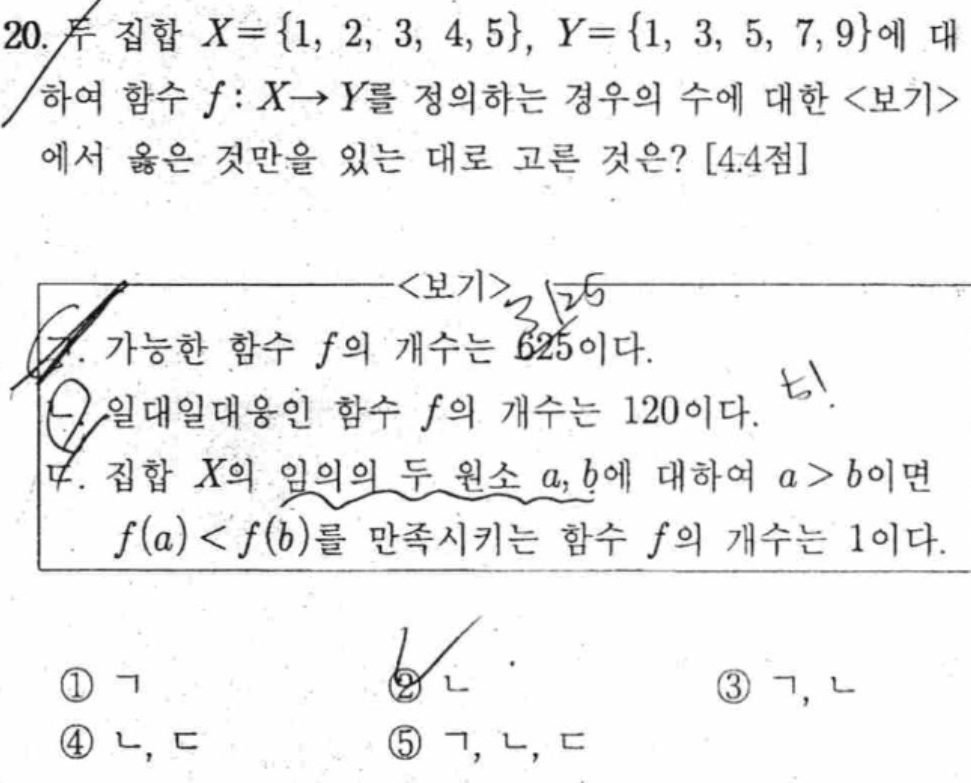 20. 두 집합 X={1, 2, 3, 4, 5}, Y={1, 3, 5, 7, 9}에 대
하여 함수 f : X→Y를 정의하는 경우의 수에 대한 <보기>
에서 옳은 것만을 있는 대로 고른 것은? [4.4점]
<보기>
3125
ㄱ. 가능한 함수 f의 개수는 625이다.
ㄴ. 일대일대응인 함수 f의 개수는 120이다.
ㄷ. 집합 X의 임의의 두 원소 a, b에 대하여 a > b이면
f(a) < f(b)를 만족시키는 함수 f의 개수는 1이다.
① ㄱ ② ㄴ ③ ㄱ, ㄴ
④ ㄴ, ㄷ ⑤ ㄱ, ㄴ, ㄷ